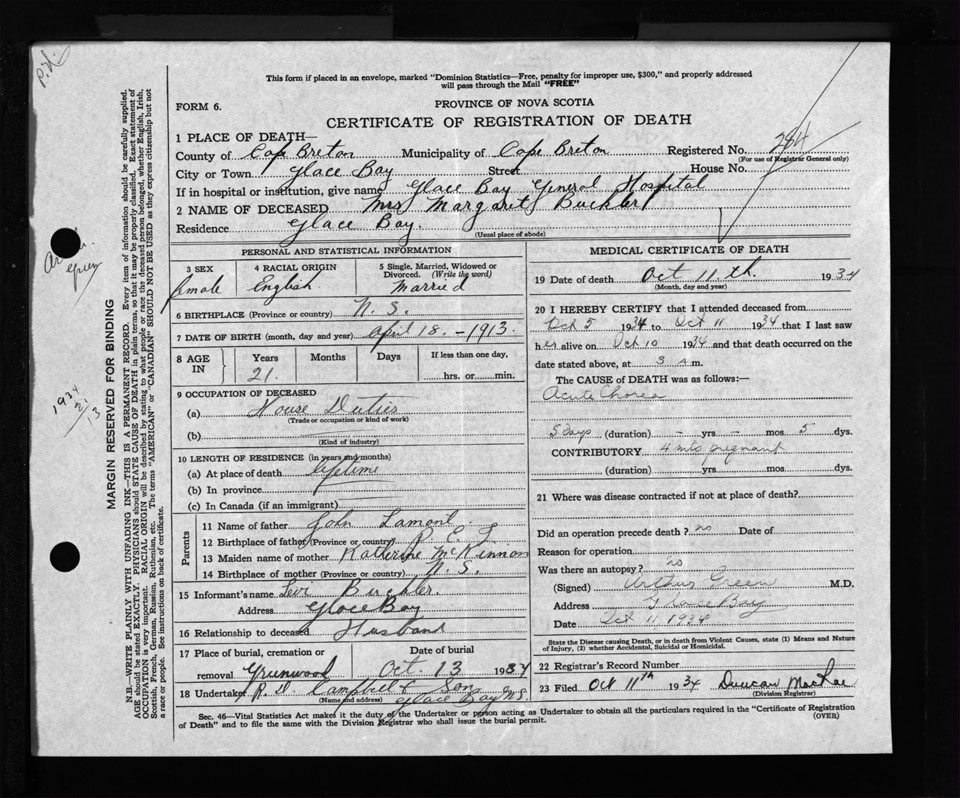 P.N.
This form if placed in an envelope, marked "Dominion Statistics—Free, penalty for improper use, $300," and properly addressed
will pass through the Mail "FREE"
FORM 6.
PROVINCE OF NOVA SCOTIA
CERTIFICATE OF REGISTRATION OF DEATH
1 PLACE OF DEATH—
County of Cape Breton Municipality of Cape Breton Registered No. 284
(For use of Registrar General only)
City or Town Glace Bay Street House No.
If in hospital or institution, give name Glace Bay General Hospital
2 NAME OF DECEASED Mrs Margaret Buckler
Residence Glace Bay.
(Usual place of abode)
PERSONAL AND STATISTICAL INFORMATION
3 SEX 4 RACIAL ORIGIN 5 Single, Married, Widowed or
Divorced. (Write the word)
female English Married
6 BIRTHPLACE (Province or country) N. S.
7 DATE OF BIRTH (month, day and year) April 18. - 1913.
8 AGE IN Years Months Days If less than one day,
21. hrs. or min.
9 OCCUPATION OF DECEASED
(a) House Duties
(Trade or occupation or kind of work)
(b)
(Kind of industry)
10 LENGTH OF RESIDENCE (in years and months)
(a) At place of death lifetime
(b) In province
(c) In Canada (if an immigrant)
Parents
11 Name of father John Lamont
12 Birthplace of father (Province or country) P. E. I
13 Maiden name of mother Katherine McKinnon
14 Birthplace of mother (Province or country) N. S.
15 Informant's name Levi Buckler.
Address Glace Bay
16 Relationship to deceased Husband
17 Place of burial, cremation or Date of burial
removal Greenwood Oct. 13 1934
18 Undertaker R. D. Campbell & Son
(Name and address) Glace Bay N S
MEDICAL CERTIFICATE OF DEATH
19 Date of death Oct 11.th. 1934
(Month, day and year)
20 I HEREBY CERTIFY that I attended deceased from
Oct 5 1934 to Oct 11 1934 that I last saw
her alive on Oct 10 1934 and that death occurred on the
date stated above, at 3 A.m.
The CAUSE of DEATH was as follows:—
Acute Chorea
5 days (duration) - yrs. - mos 5 dys.
CONTRIBUTORY 4 mts pregnant
(duration) yrs. mos dys.
21 Where was disease contracted if not at place of death?
Did an operation precede death? no Date of
Reason for operation
Was there an autopsy? no
(Signed) Arthur Green M.D.
Address Glace Bay
Date Oct 11 1934
State the Disease causing Death, or in death from Violent Causes, state (1) Means and Nature
of Injury, (2) whether Accidental, Suicidal or Homicidal.
22 Registrar's Record Number
23 Filed Oct 11th 1934 Duncan MacRae
(Division Registrar)
Sec. 46—Vital Statistics Act makes it the duty of the Undertaker or person acting as Undertaker to obtain all the particulars required in the "Certificate of Registration
of Death" and to file the same with the Division Registrar who shall issue the burial permit. (OVER)
MARGIN RESERVED FOR BINDING
N.B.—WRITE PLAINLY WITH UNFADING INK—THIS IS A PERMANENT RECORD. Every item of information should be carefully supplied.
AGE should be stated EXACTLY. PHYSICIANS should STATE CAUSE OF DEATH in plain terms, so that it may be properly classified. Exact statement of
OCCUPATION is very important. RACIAL ORIGIN will be described by stating to what people or race the deceased person belonged, whether English, Irish,
Scottish, French, German, Russian, Ruthenian, etc. The terms "AMERICAN" or "CANADIAN" SHOULD NOT BE USED as they express citizenship but not
a race or people. See instructions on back of certificate.
Green
1934
21
13